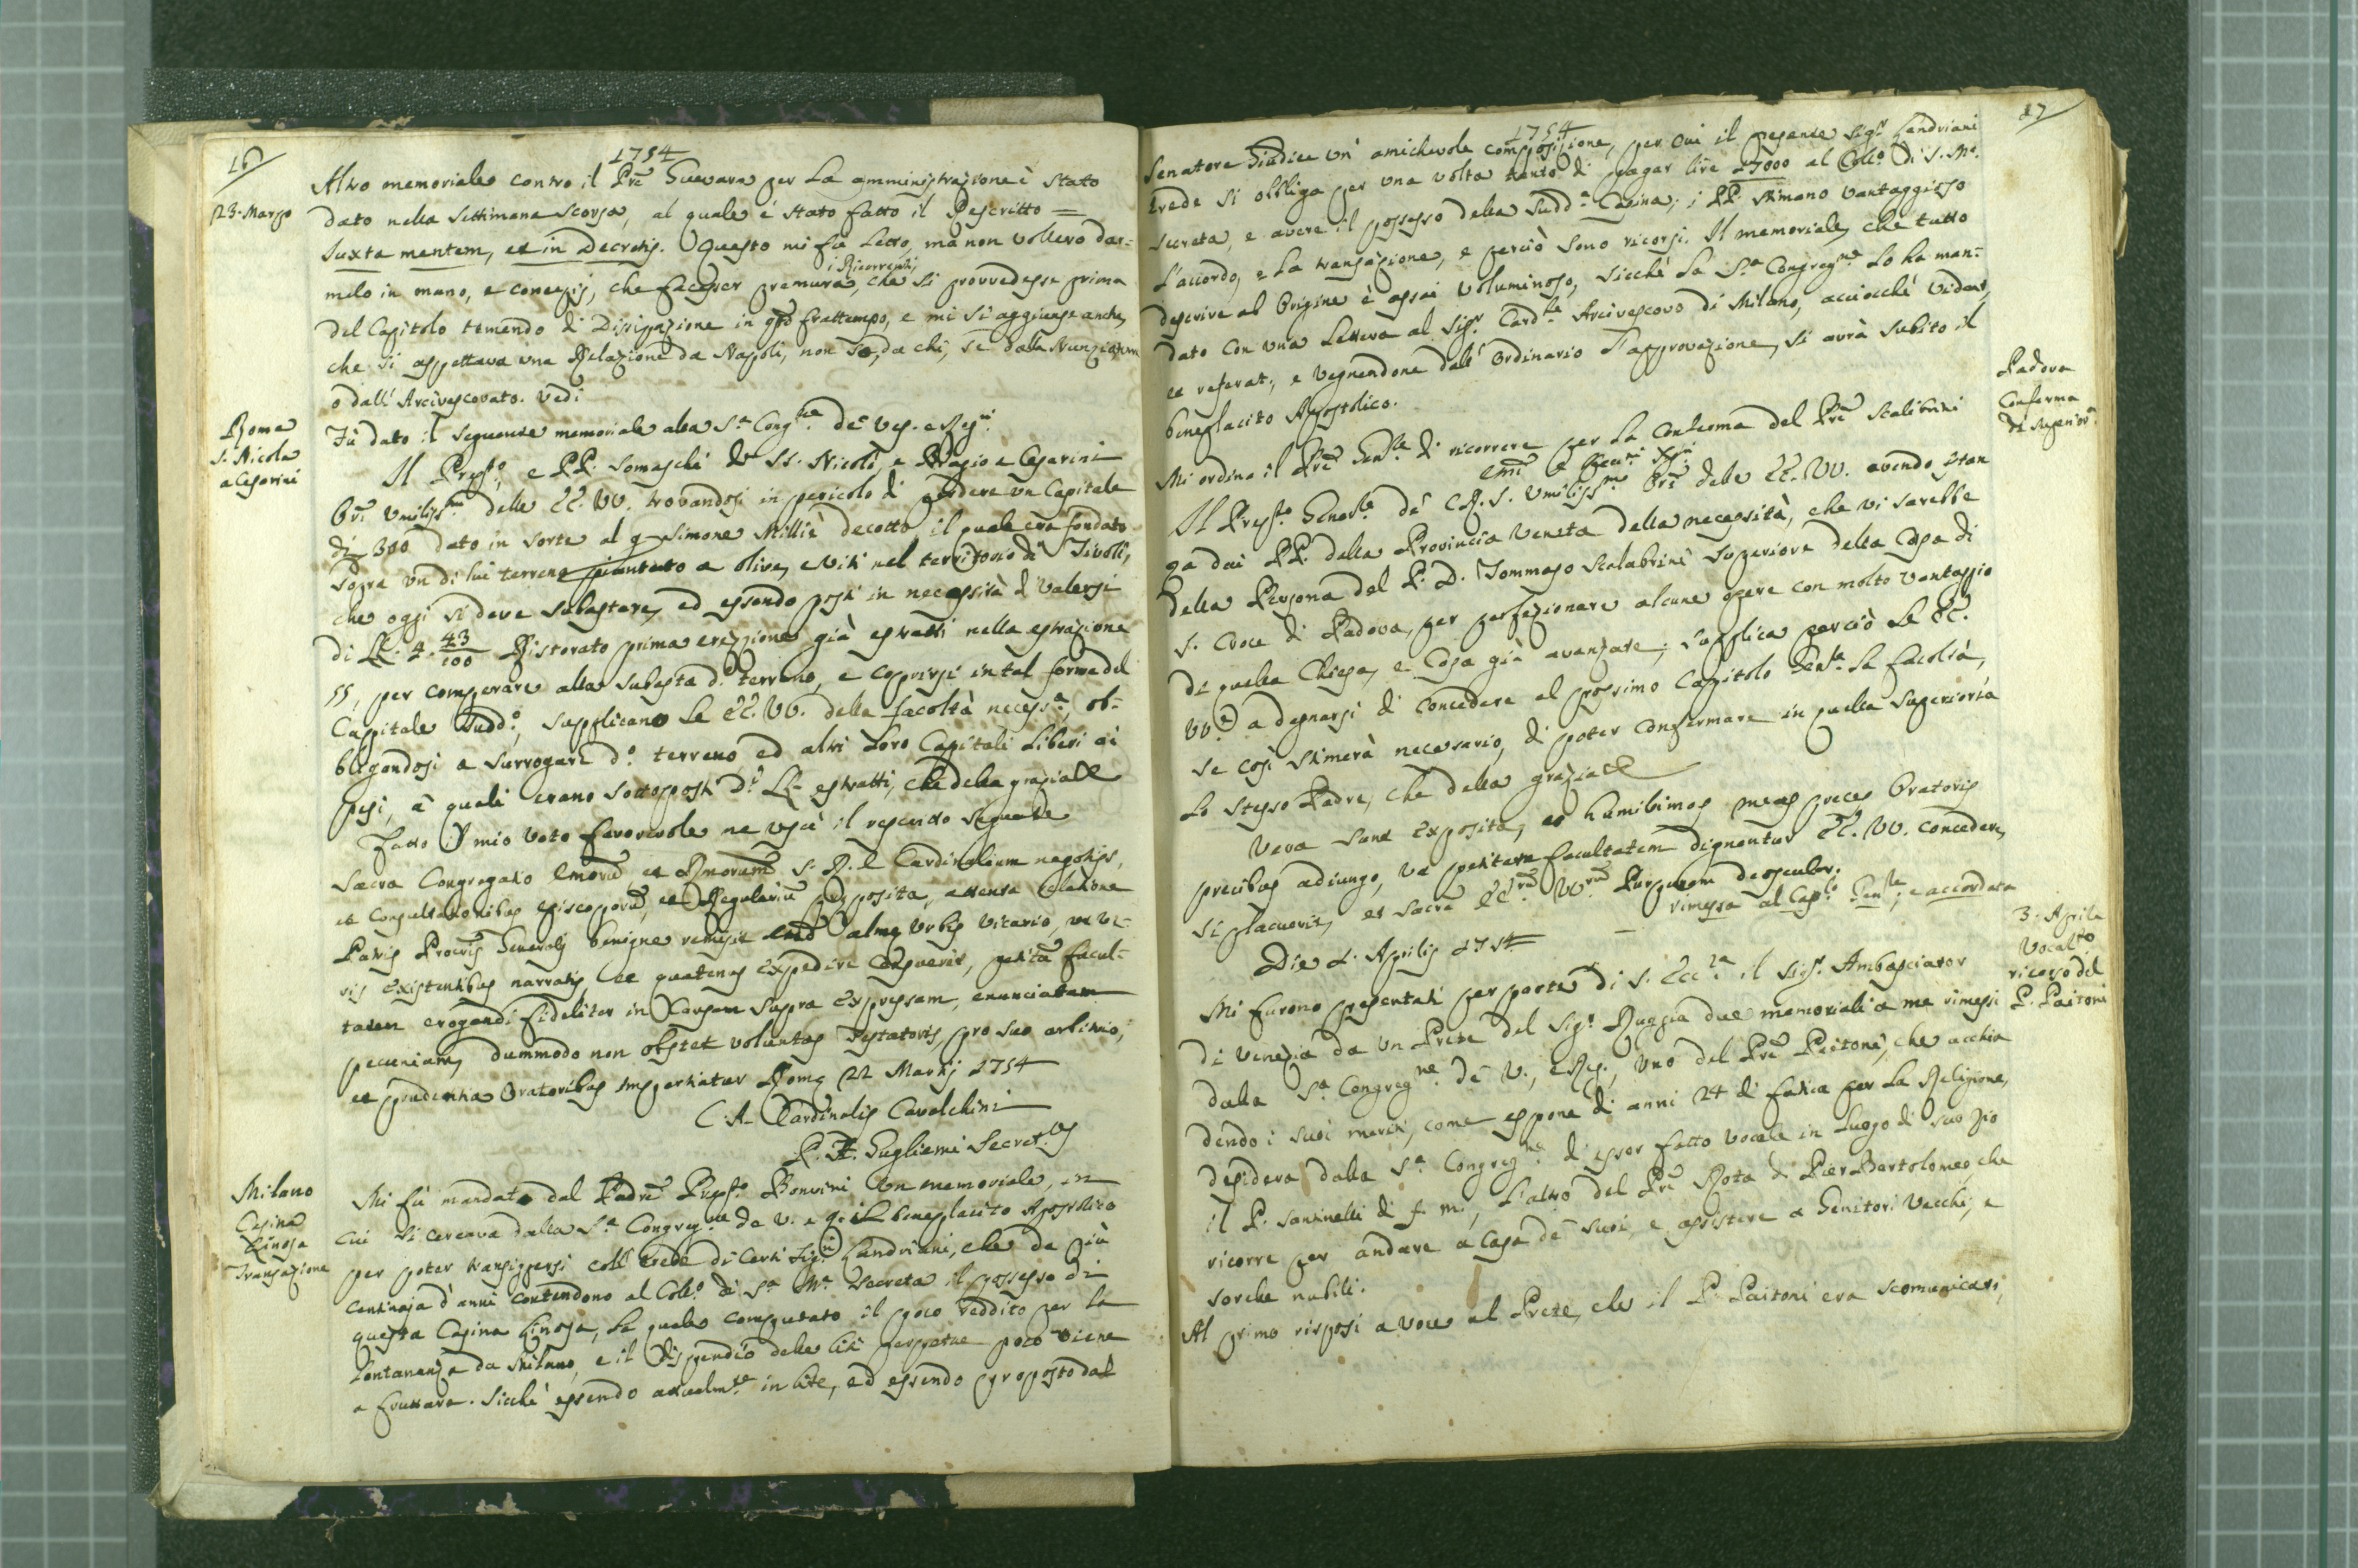 16
1754
23. Marzo
Altro memoriale contro il Prē Guevara per la amministrazione è stato
dato nella settimana scorsa, al quale è stato fatto il Rescritto =
Juxta mentem, et in Decretis. Questo mi fù letto, mà non vollero dar=
melo in mano, e conespij, che facesser premura i Ricorrenti, che si provvedesse prima
del Capitolo temendo di Dissipazione in qto frattempo, e mi si aggiunse anche,
che si aspettava una Relazione da Napoli, non sò, da chi, se dalla Nunziatura
o dall' Arcivescovato. Vedi
Roma
S. Nicola
a Cesarini
Fù dato il seguente memoriale alla S.a Cong.ne de Ves. e Reg.ri
Il Prep.to, e PP. Somaschi de SS. Nicolò, e Biagio a Cesarini
Ori umiliss.mi delle EE. VV. trovandosi in pericolo di perdere un Capitale
di 300 dato in sorte al q. Simone Milliè decotto, il quale era fondato
sopra un di lui terreno piantato a olive, e viti nel territorio di Tivoli,
che oggi si deve subastare, ed essendo posti in necessità di valersi
di LL. 4. 43/100 Ristorato prima erezzione già estratti nella estrazione
55, per comperare alla subasta d.o terreno, e coprirsi in tal forma del
Capitale sudd.o, supplicano le EE. VV. della facoltà necess.a, ob=
bligandosi a surrogare d.o terreno, ed altri loro Capitali liberi ai
pesi, à quali erano sottoposti d.i LL. estratti, che della grazia &
Fatto il mio voto favorevole ne uscì il rescritto seguente
Sacra Congregatio Emorū et Rmorum S. R. E. Cardinalium negotiis,
et Consultationibus Episcoporū, et Regulariū preposita, attenta relatione
Patris Procris Generalis benigne remisit Emō almæ Urbis Vicario, ut ve=
ris existentibus narratis, et quatenus expedire censuerit, petitā facul=
tatem erogandi fideliter in causam supra expressam, enunciatam
pecuniam, dummodo non obstet voluntas Testatoris, pro suo arbitrio,
et prudentia Oratoribus impertiatur Romæ 22 Martij 1754
C. A. Cardinalis Cavalchini
P. F. Gugliemi Secret.us
Milano
Casina
Linosa
Transazione
Mi fù mandato dal Padre Prep.to Bonvini un memoriale, in
cui si cercava dalla S.a Congreg.ne de V. e R. il beneplacito Apostolico
per poter transiggersi coll' erede di certi Sig.ri Landriani, che da più
centinaja d'anni contendono al Coll.o di S.a M.a Secreta il possesso di
questa Casina Linosa, la quale computato il poco reddito per la
lontananza da Milano, e il dispendio delle liti perpetue poco viene
a fruttare. Sicchè essendo attualm.te in lite, ed essendo proposto dal
17
1754
Senatore Giudice un' amichevole composizione, per cui il presente Sig.r Landriani
erede si obbliga per una volta tanto di pagar lire 17000 al Coll.o di S. M.a
Secreta, e avere il possesso della sudd.a Casina; i PP. stimano vantaggioso
l'accordo, e la transazione, e perciò sono ricorsi. Il memoriale, che tutto
descrive ab origine è assai voluminoso, sicchè la S.a Congreg.ne lo ha man=
dato con una lettera al Sig.r Card.le Arcivescovo di Milano, acciocchè videat,
et referat, e vegnendone dall' Ordinario l'approvazione, si avrà subito il
beneplacito Apostolico.
Padova
Conferma
di Superior.e
Mi ordina il Prē Gen.le di ricorrere per la conferma del Prē Scalibrini
Emī e Reu.mi Sig.ri
Il Prep.to Gener.le de' C. R. S. umiliss.mo Ore delle EE. VV. avendo istan
za dai PP. della Provincia Veneta della necessità, che vi sarebbe
della Persona del P. D. Tommaso Scalabrini Superiore della Casa di
S. Croce di Padova, per perfezionare alcune opere con molto vantaggio
di quella Chiesa, e Casa già avanzate; supplica perciò le EE.
VV. a degnarsi di concedere al prossimo Capitolo Gen.le la facoltà,
se così stimerà necessario, di poter confermare in quella Superiorità
lo stesso Padre, che della grazia &
Vera sane exposita, et humillimas meas preces Oratoris
precibus adiungo, ut petitam facultatem dignentur EE. VV. concedere,
si placuerit, et Sacrā EE.rū VV.rū Purpuram deosculor.
rimessa al Cap.lo Gen.le, e accordata
Die 2. Aprilis 1754
3. Aprile
Vocal.to
ricorso del
P. Paitoni
Mi furono presentati per parte di S. Ecc.za il Sig.r Ambasciator
di Venezia da un Prete del Sig.r Ruggia due memoriali a me rimessi
dalla S.a Congreg.ne de V., e Reg., uno del Prē Paitoni, che acchiu
dendo i suoi meriti, come espone di anni 24 di fatica per la Religione,
desidera dalla S.a Congreg.ne di esser fatto vocale in luogo di suo zio
il P. Santinelli di f. m., l'altro del Prē Rota di Pier Bartolomeo, che
ricorre per andare a Casa de' suoi, e assistere a Genitori vecchi, e
sorelle nubili.
Al primo risposi a voce al Prete, che il P. Paitoni era scomunicato,